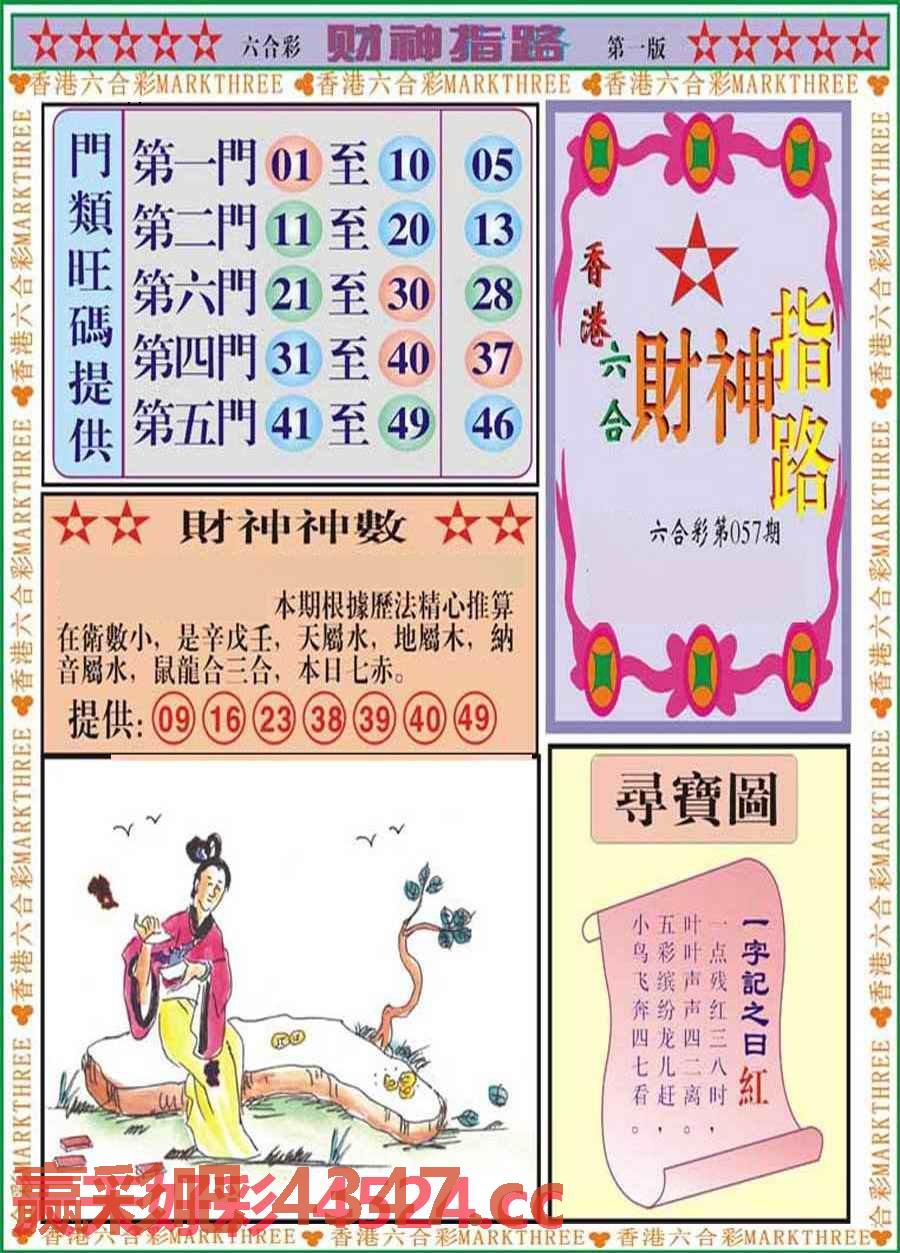 六合彩 财神指路 第一版
香港六合彩MARKTHREE 香港六合彩MARKTHREE 香港六合彩MARKTHREE
門類旺碼提供
第一門 01 至 10 05
第二門 11 至 20 13
第六門 21 至 30 28
第四門 31 至 40 37
第五門 41 至 49 46
香港六合
財神指路
六合彩第057期
財神神數
本期根據歷法精心推算
在術數小，是辛戊壬，天屬水，地屬木，納
音屬水，鼠龍合三合，本日七赤。
提供: 09 16 23 38 39 40 49
尋寶圖
一字記之日紅
一点残红三八时，
叶叶声声四二离。
五彩缤纷龙儿赶，
小鸟飞奔四七看。
香港六合彩MARKTHREE 香港六合彩MARKTHREE 香港六合彩MARKTHREE